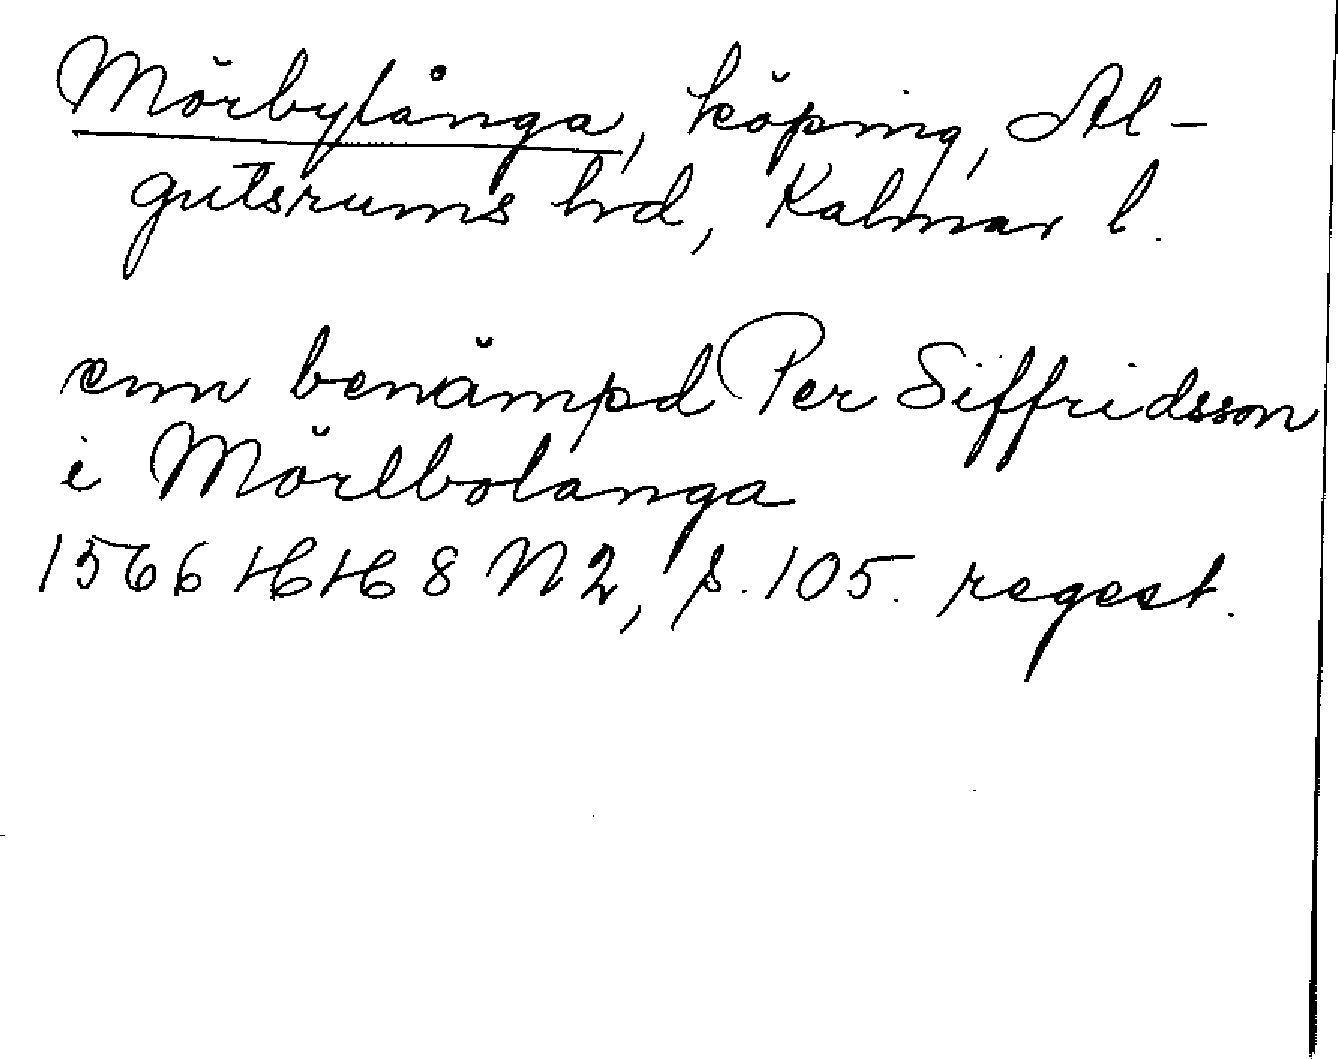 Mörbylånga, köping, Al-
gutsrums hrd, Kalmar l.
enn benämpd Per Siffridsson
i Mörlbolanga
1566 HH 8 N2, s. 105. regest.